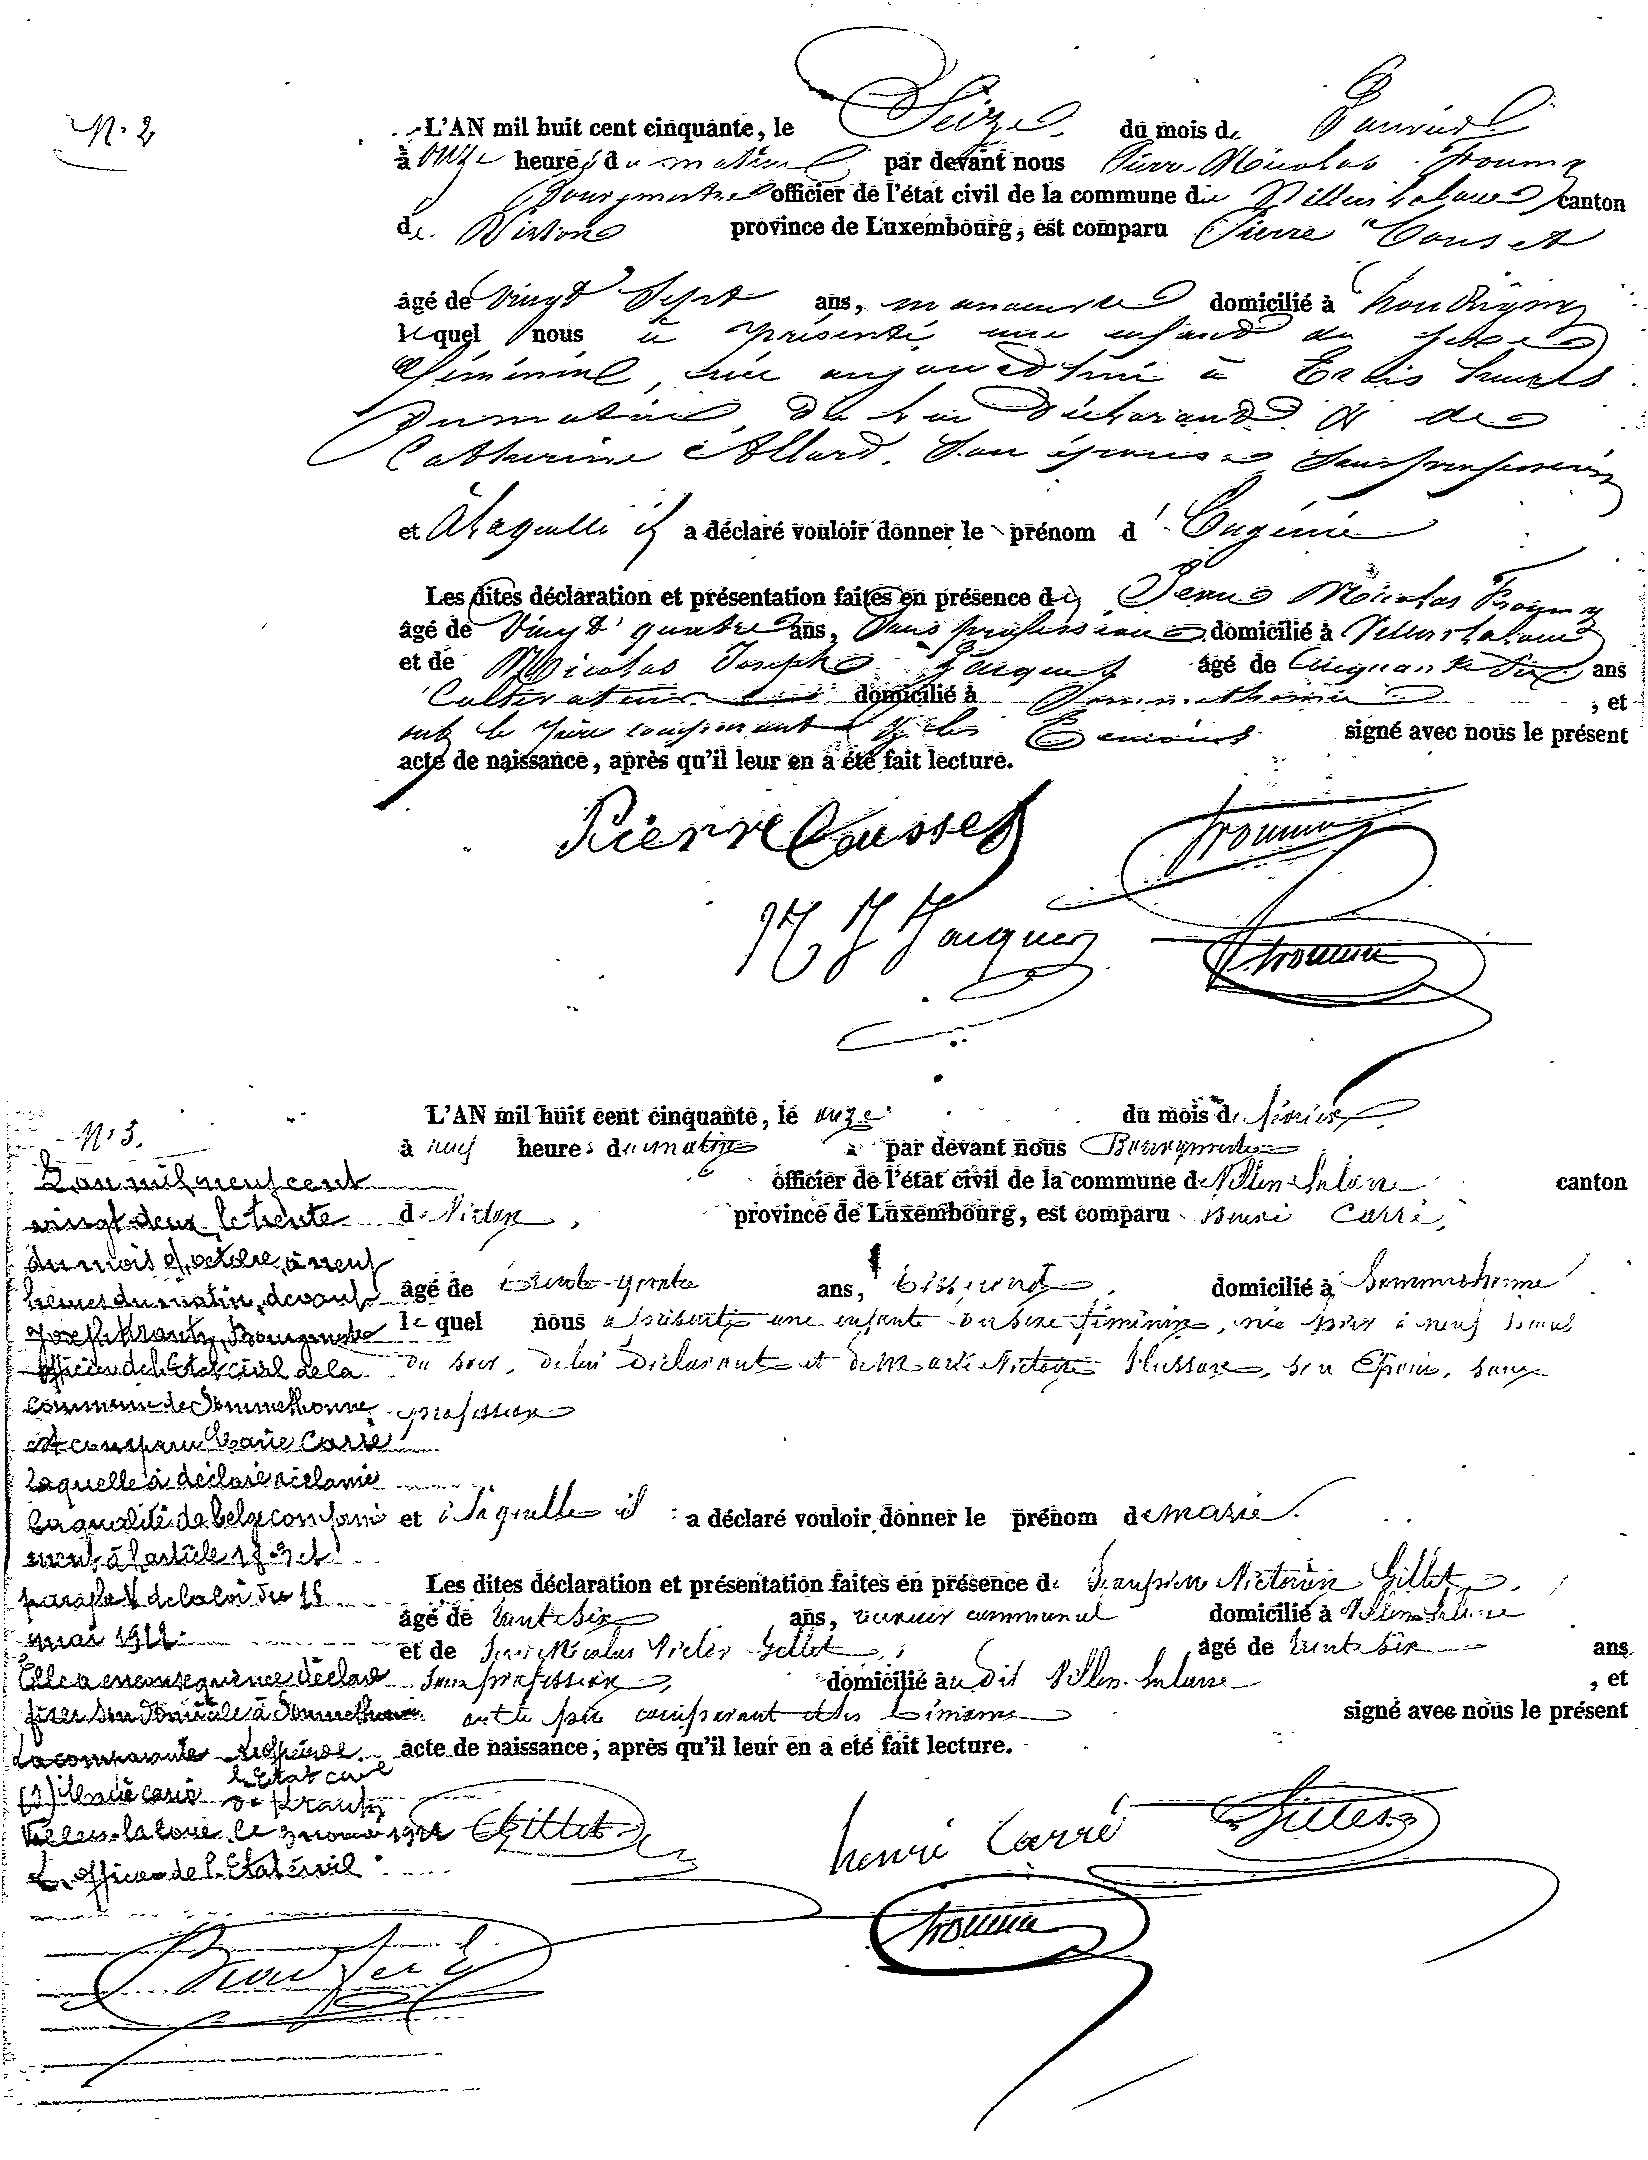 N. 2
L'AN mil huit cent cinquante, le Seize du mois de Janvier
à onze heures du matin par devant nous Pierre Nicolas
Bourgmestre officier de l'état civil de la commune de Villers la loue canton
de Virton province de Luxembourg, est comparu Pierre Cousset
âgé de vingt Sept ans, manoeuvre domicilié à houdrigny
lequel nous a présenté une enfant du sexe
féminin, née aujourd'hui à Trois heures
du matin, de lui déclarant & de
Catherine Allard, Son épouse Sans profession
et à laquelle il a déclaré vouloir donner le prénom d'Eugénie
Les dites déclaration et présentation faites en présence de Nicolas
âgé de Vingt quatre ans, Sans profession domicilié à Villers la loue
et de Nicolas Joseph Jacques âgé de Cinquante Six ans
Cultivateur domicilié à Sommethonne , et
ont le père comparant & les Témoins signé avec nous le présent
acte de naissance, après qu'il leur en a été fait lecture.
Pierre Cousset
N J Jacques
N. 3.
L'AN mil huit cent cinquante, le onze du mois de février
à neuf heures du matin par devant nous Bourgmestre
officier de l'état civil de la commune de Villers-la loue canton
de Virton, province de Luxembourg, est comparu henri Carré,
âgé de trente-quatre ans, Tisserand, domicilié à Sommethonne
lequel nous a présenté une enfant du sexe féminin, née hier à neuf heures
du soir, de lui Déclarant et de Marie Victoire son Epouse, sans
profession
et à laquelle il a déclaré vouloir donner le prénom de marie.
Les dites déclaration et présentation faites en présence de Gillet,
âgé de trente six ans, communal domicilié à Villers-la loue
et de Jean Nicolas Victor Gillet, âgé de trente six ans
Sans profession, domicilié au dit Villers-la loue , et
ont le père comparant et les témoins signé avec nous le présent
acte de naissance, après qu'il leur en a été fait lecture.
L'an mil neuf cent
vingt deux, le trente
du mois d'octobre, à neuf
heures du matin, devant
Joseph Krantz, Bourgmestre
officier de l'Etat civil de la
commune de Sommethonne
est comparu Marie Carré
laquelle a déclaré réclamer
la qualité de belge conformé
ment à l'article 18 et
de la loi du 15
mai 1922.
Elle a en conséquence déclaré
fixer son domicile à Sommethonne
La comparante
l'Etat civil
(s) Marie Carré
Villers-la loue, le 1922
L'officier de l'Etat civil
Gillet
henri Carré
Gillet